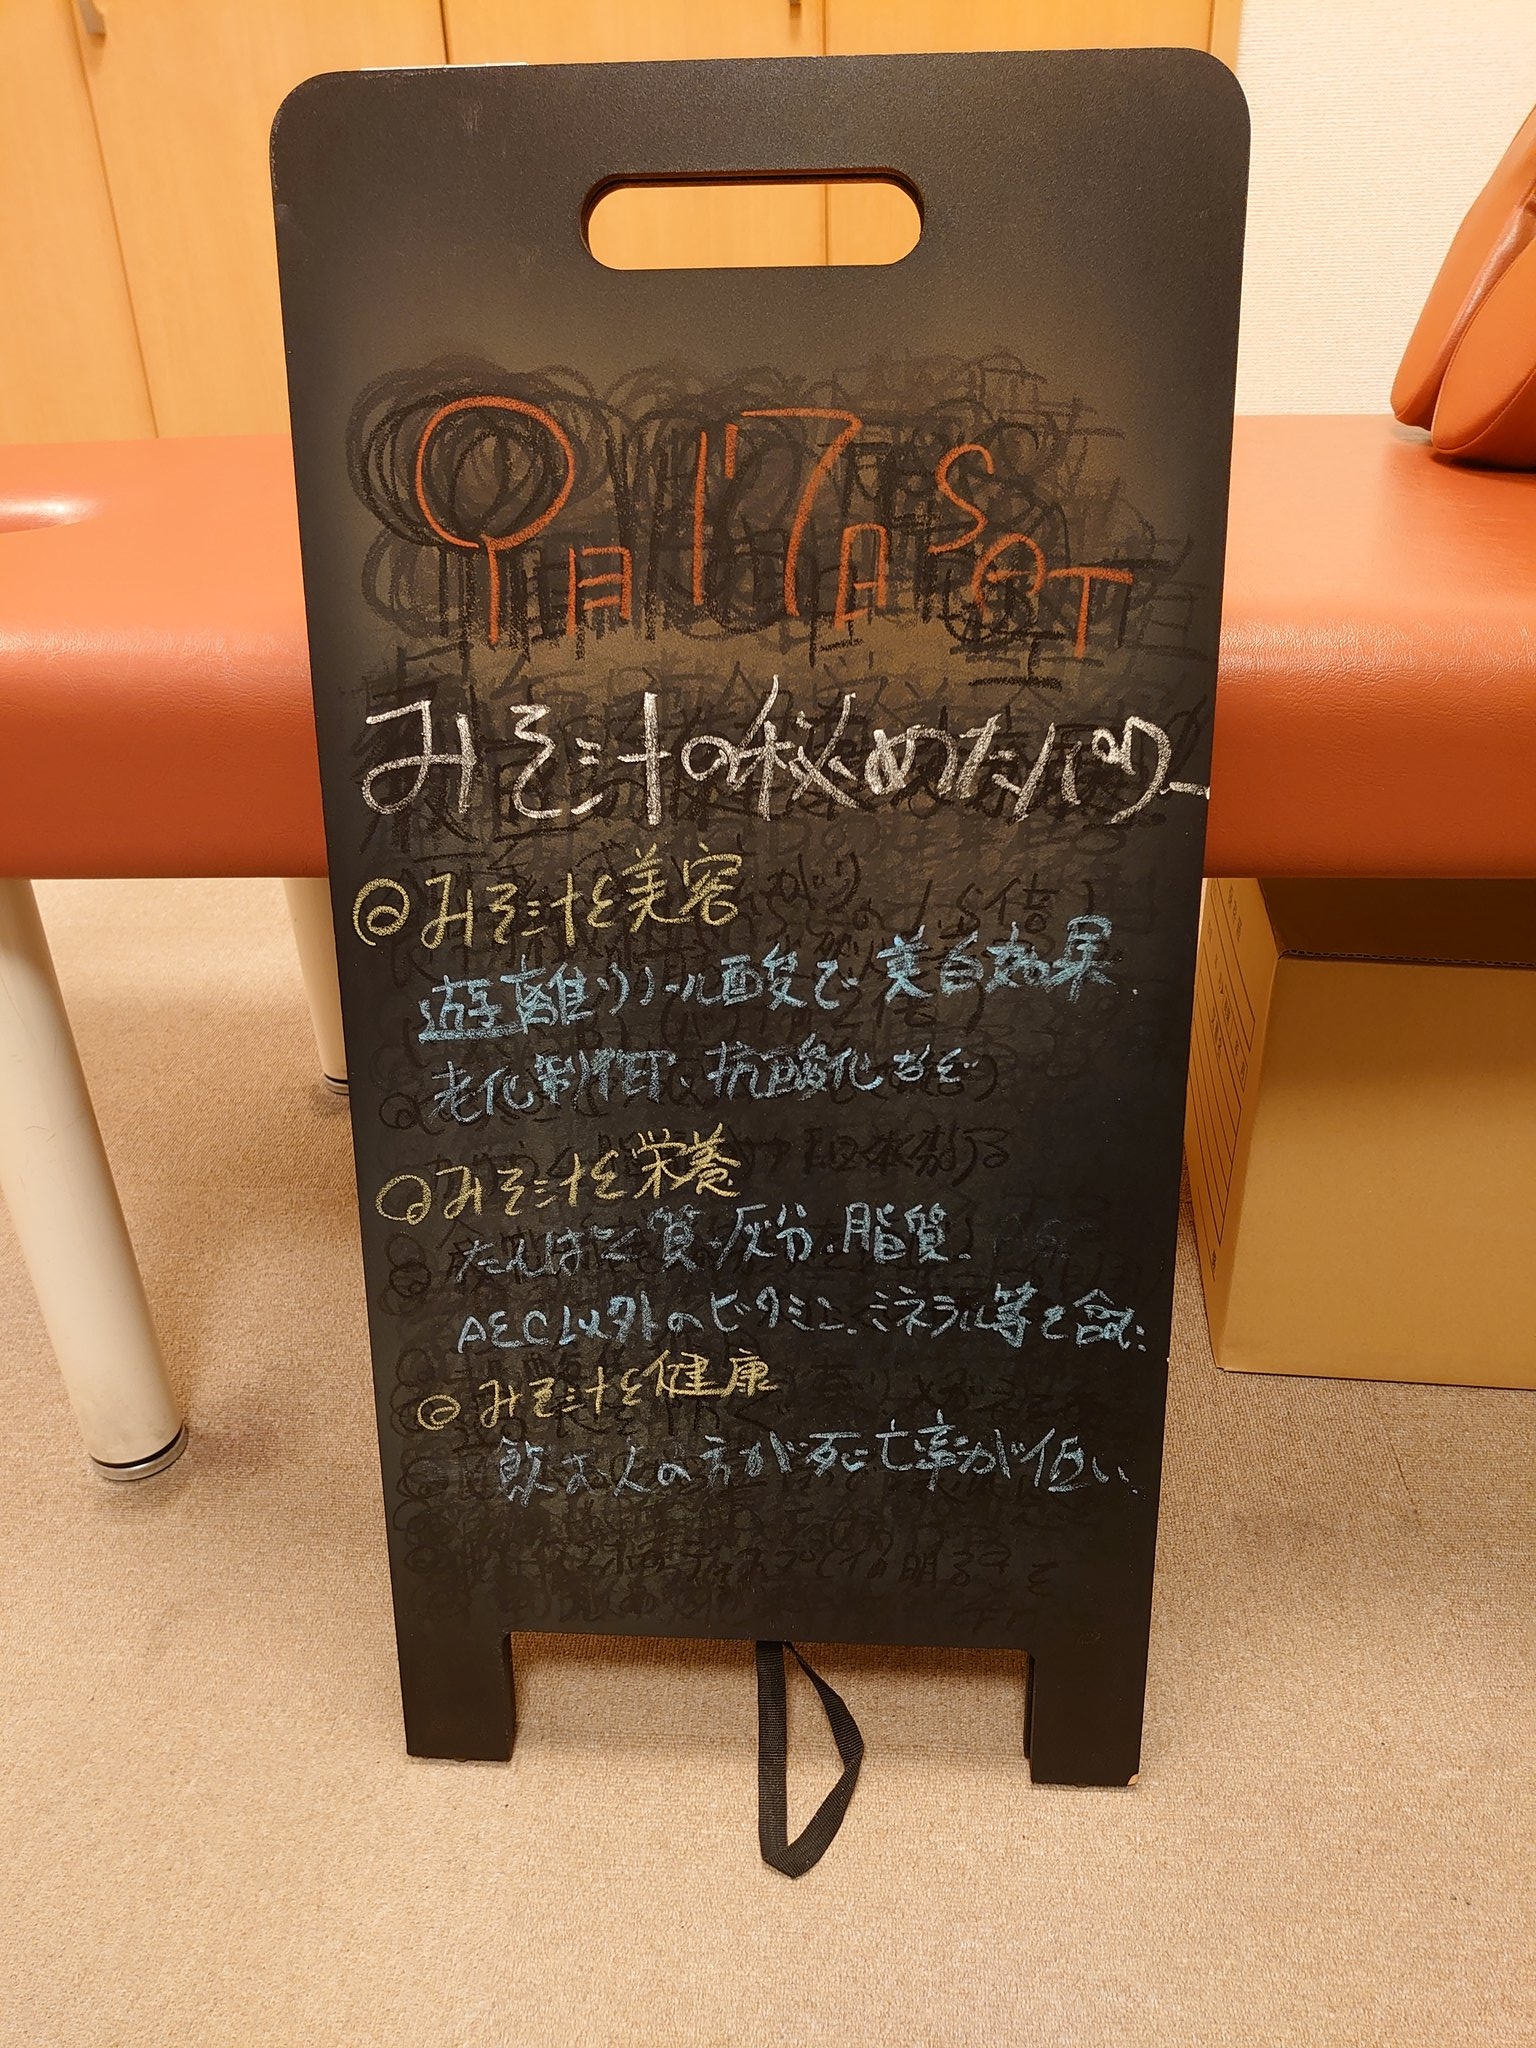 9月17日 SAT
みそ汁の秘めたパワー
◎みそ汁と美容
遊離リノール酸で美白効果、
老化制御、抗酸化など
◎みそ汁と栄養
たんぱく質・灰分・脂質、
AとC以外のビタミン、ミネラル等を含む
◎みそ汁と健康
飲む人の方が死亡率が低い、